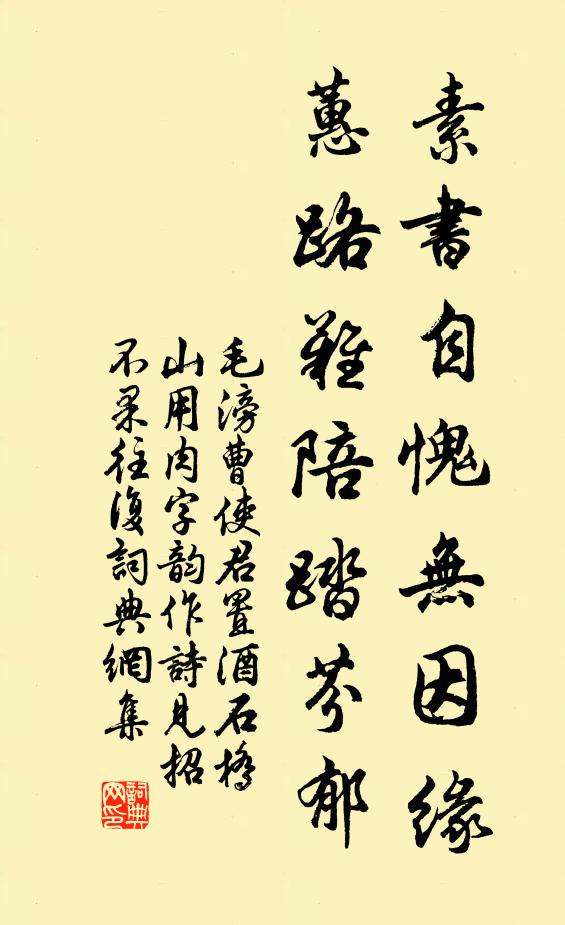 素書自愧無因緣
蕙路難陪踏芬郁
毛滂曹使君置酒石橋
山用肉字韵作詩見招
不果往復詞典網集
詞典
网印